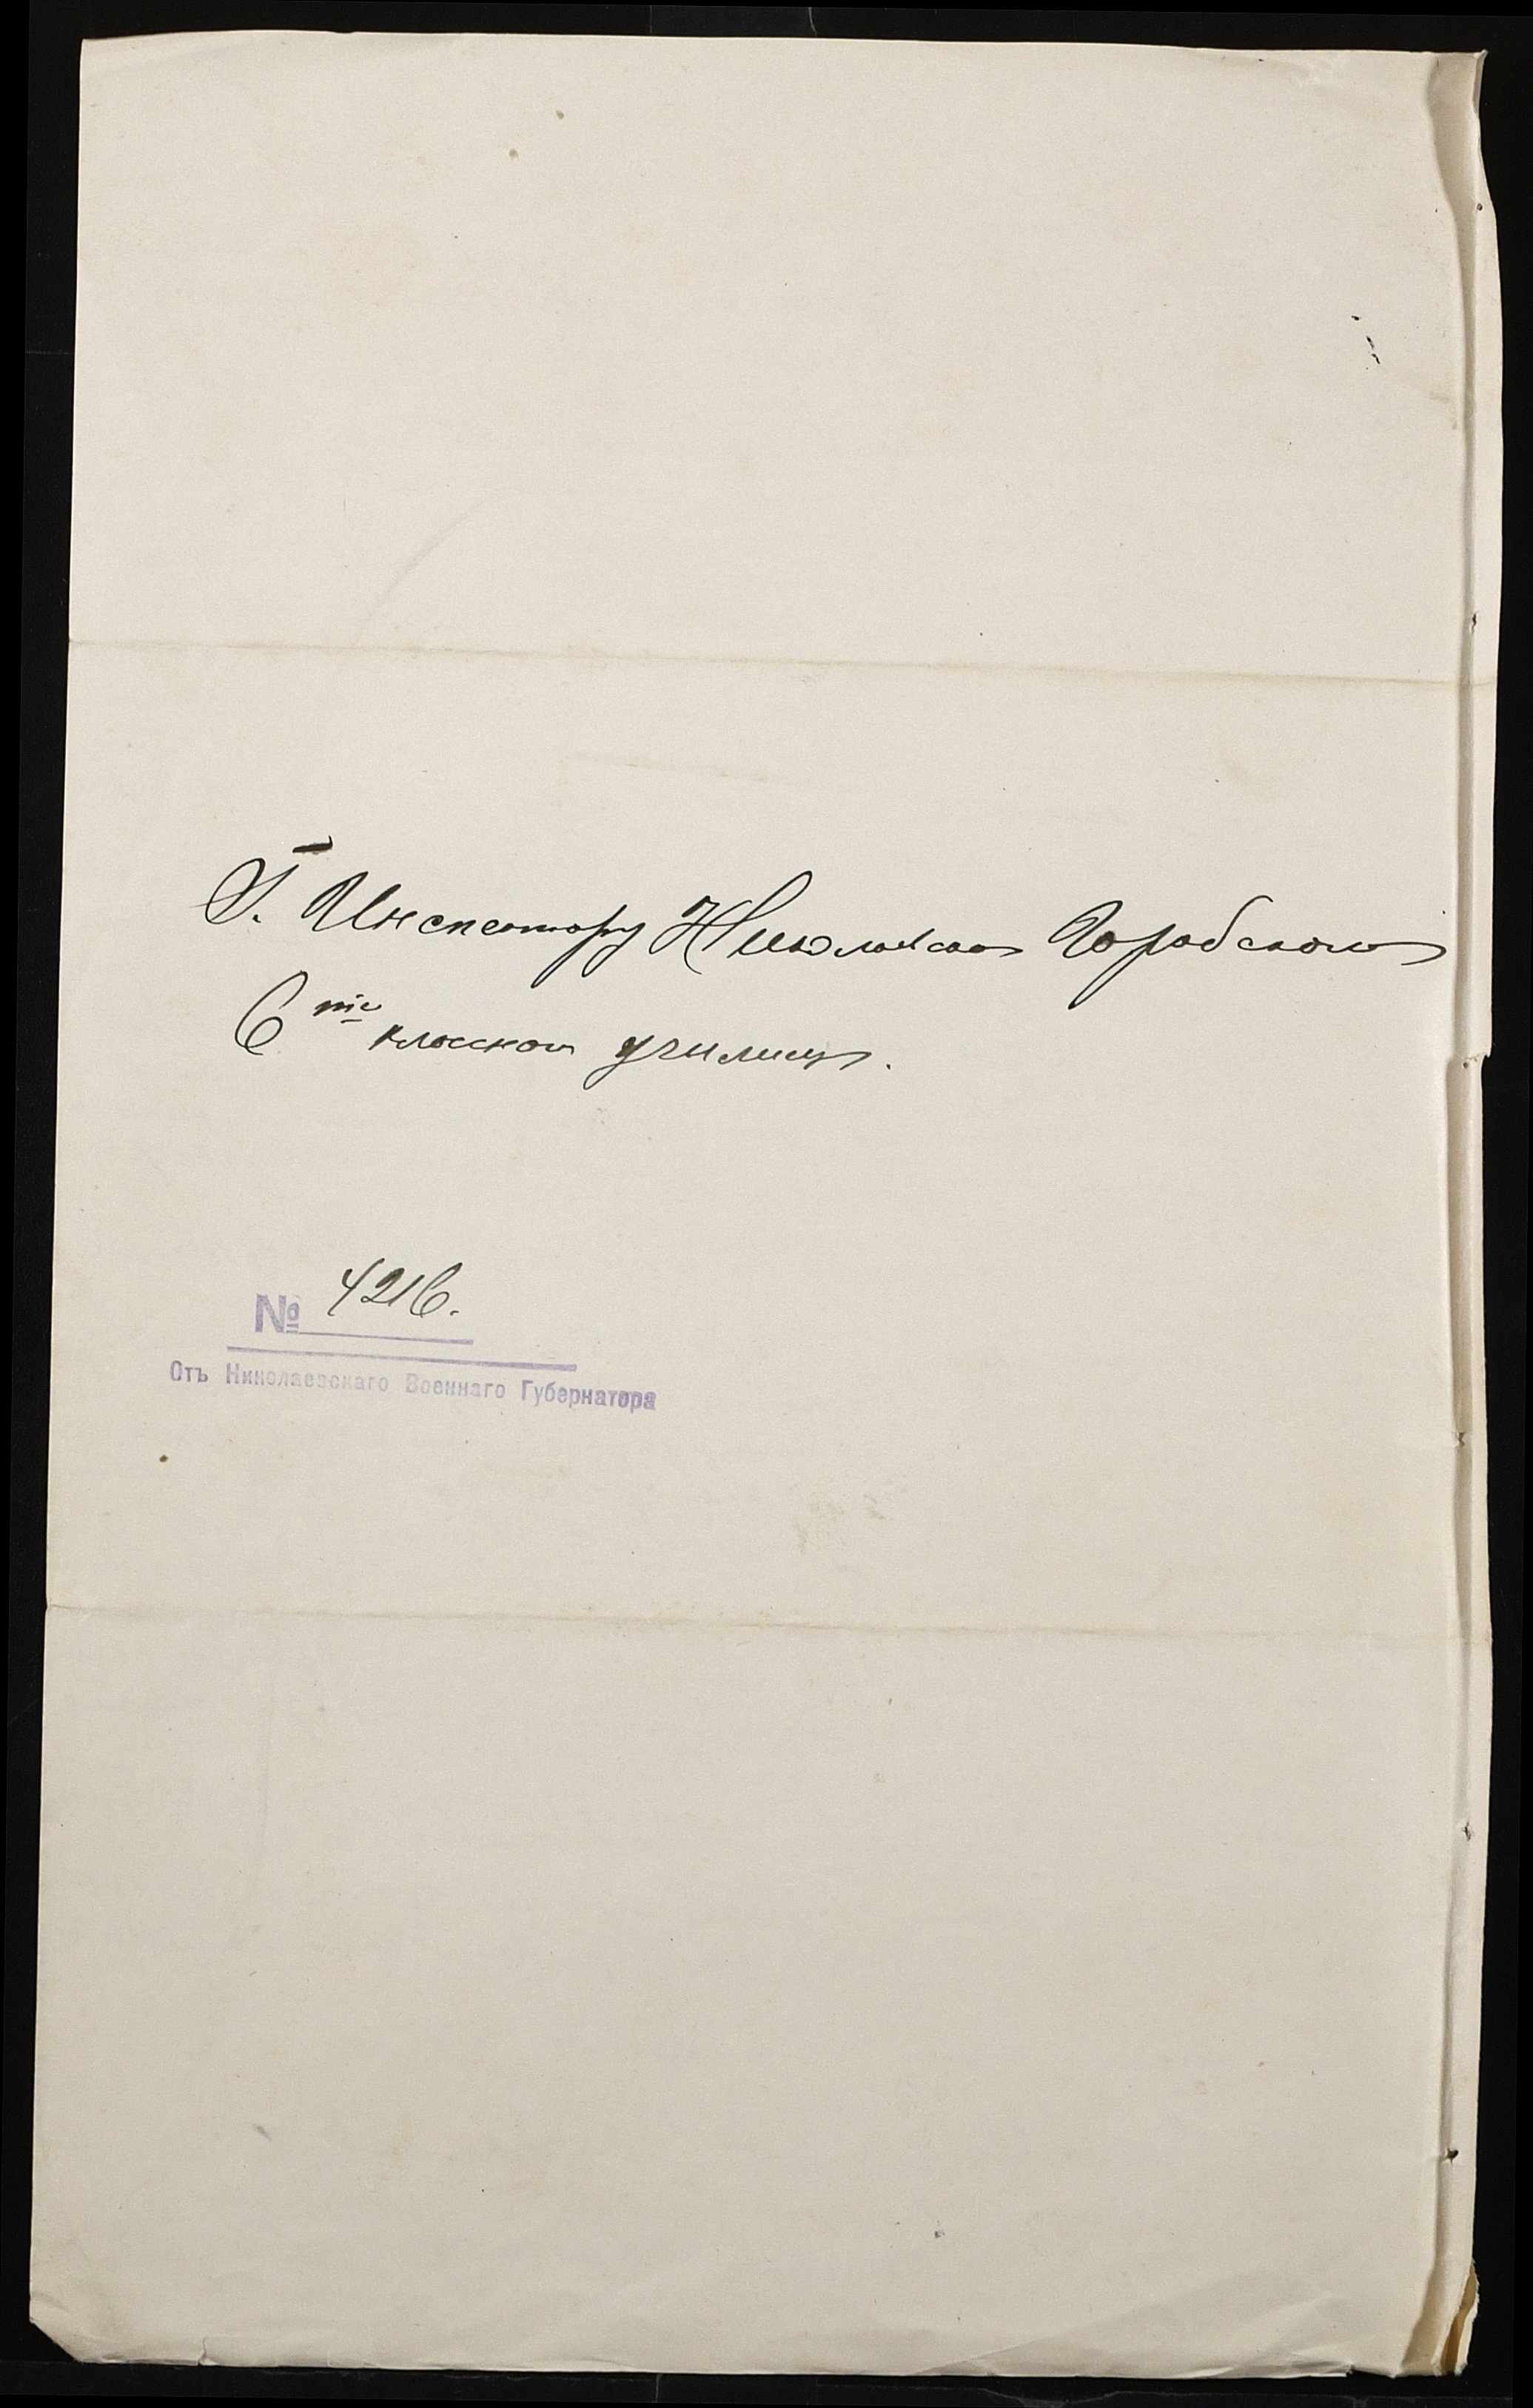 Г. Инспектору Николаевскаго Городского
6ти класснаго училища.
4216.
№
Отъ Николаевскаго Военнаго Губернатора